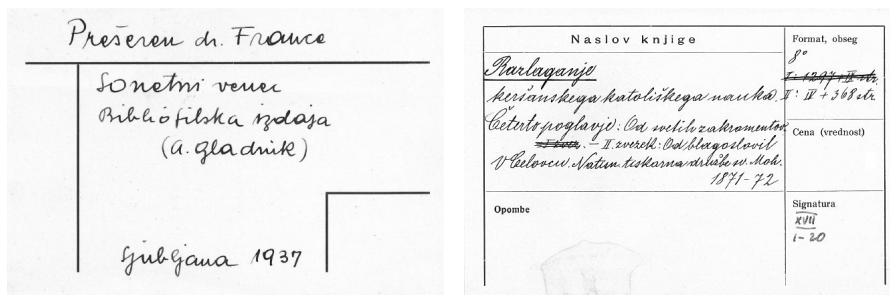 Prešeren dr. France
Sonetni venec
Bibliofilska izdaja
(A. Gladnik)
Ljubljana 1937
Naslov knjige
Razlaganje
keršanskega katoliškega nauka.
Četerto poglavje: Od svetih zakramentov
– II. zvezek: Od blagoslovil
V Celovcu. Natisn. tiskarna družbe sv. Moh.
1871-72
Opombe
Format, obseg
8°
I: 1297 + IV str.
II: IV + 368 str
Cena (vrednost)
Signatura
XVII
1-20